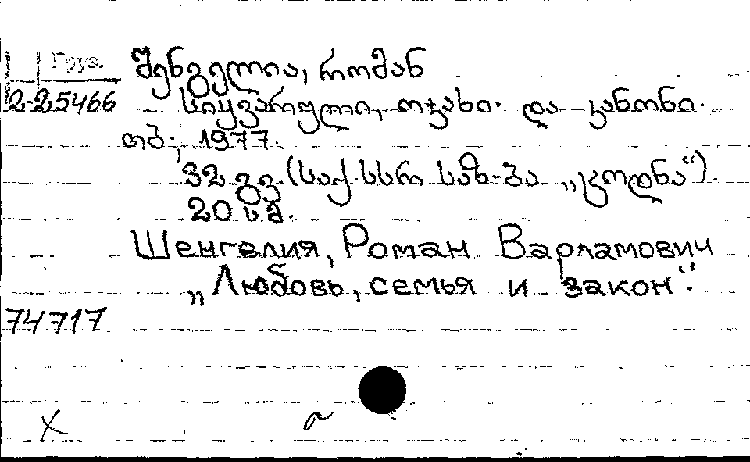 Груз.
შენგელია, რომან
2-25466 სიყვარული, ოჯახი და კანონი.
თბ., 1977.
32 გვ. (საქ. სსრ საზ-ბა „ცოდნა“).
20 სმ.
Шенгелия, Роман Варламович
„Любовь, семья и закон“.
74717